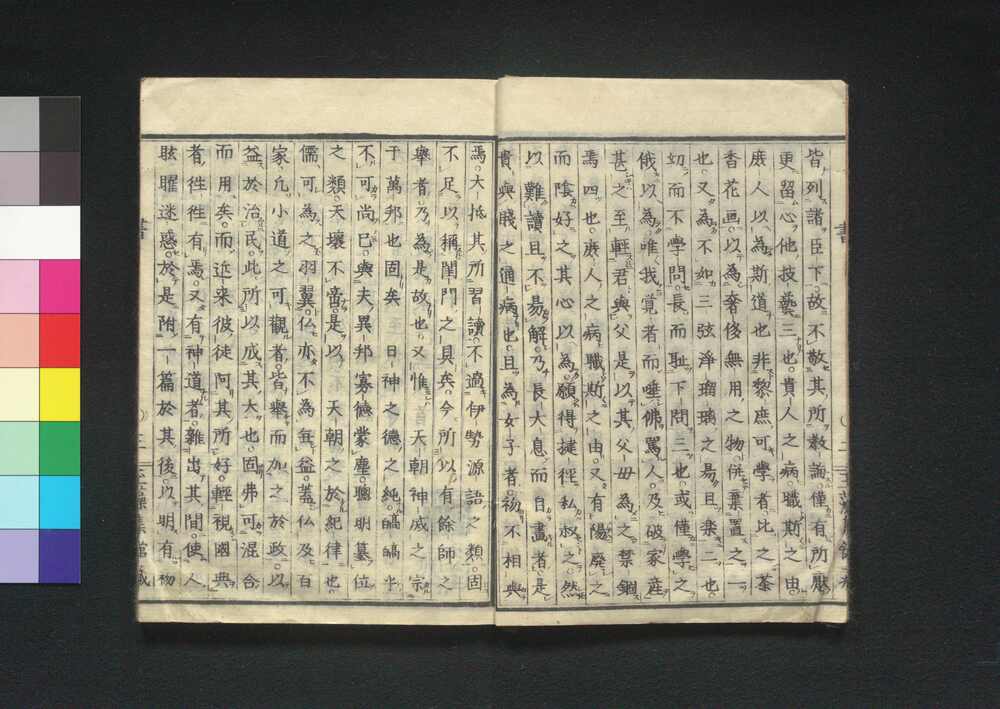 皆列諸臣下故不敬其所教論僅有所壓
更留心他技藝三也貴人之病職斯之由
庶人以為斯道也非黎庶可學者比之茶
香花画以為奢侈無用之物併棄置之一
也又為不如三弦淨瑠璃之易且楽二也
幼而不學問長而耻下問三也或僅學之
俄以為唯我覚者而唾佛罵人及破家産
甚之至軽君與父是以其父母為之禁錮
焉四也庶人之病職斯之由又有陽廃之
而陰好之其心以為願得捷徑私叔之然
以難讀且不易解乃長大息而自畫者是
貴與賤之通病也且為女子者初不相與
焉大抵其所習讀不過伊勢源語之類固
不足以稱閨門之具矣今所以有餘師之
舉者乃為是故也又惟天朝神威之宗
于萬邦也固矣日神之德之純皜皜乎
不可尚已與夫異邦寡德蒙塵聰明墓位
之類天壤不啻是以天朝之於紀律也
儒可為之羽翼仏亦不為無益蓋仏及百
家凢小道之可觀者皆舉而加之於政以
益於治民此所以成其大也固弗可混合
而用矣而近来彼徒阿其所好軽視國典
者徃徃有焉又有神道者雜出其間使人
眩矅迷惑於是附一篇於其後以明有初